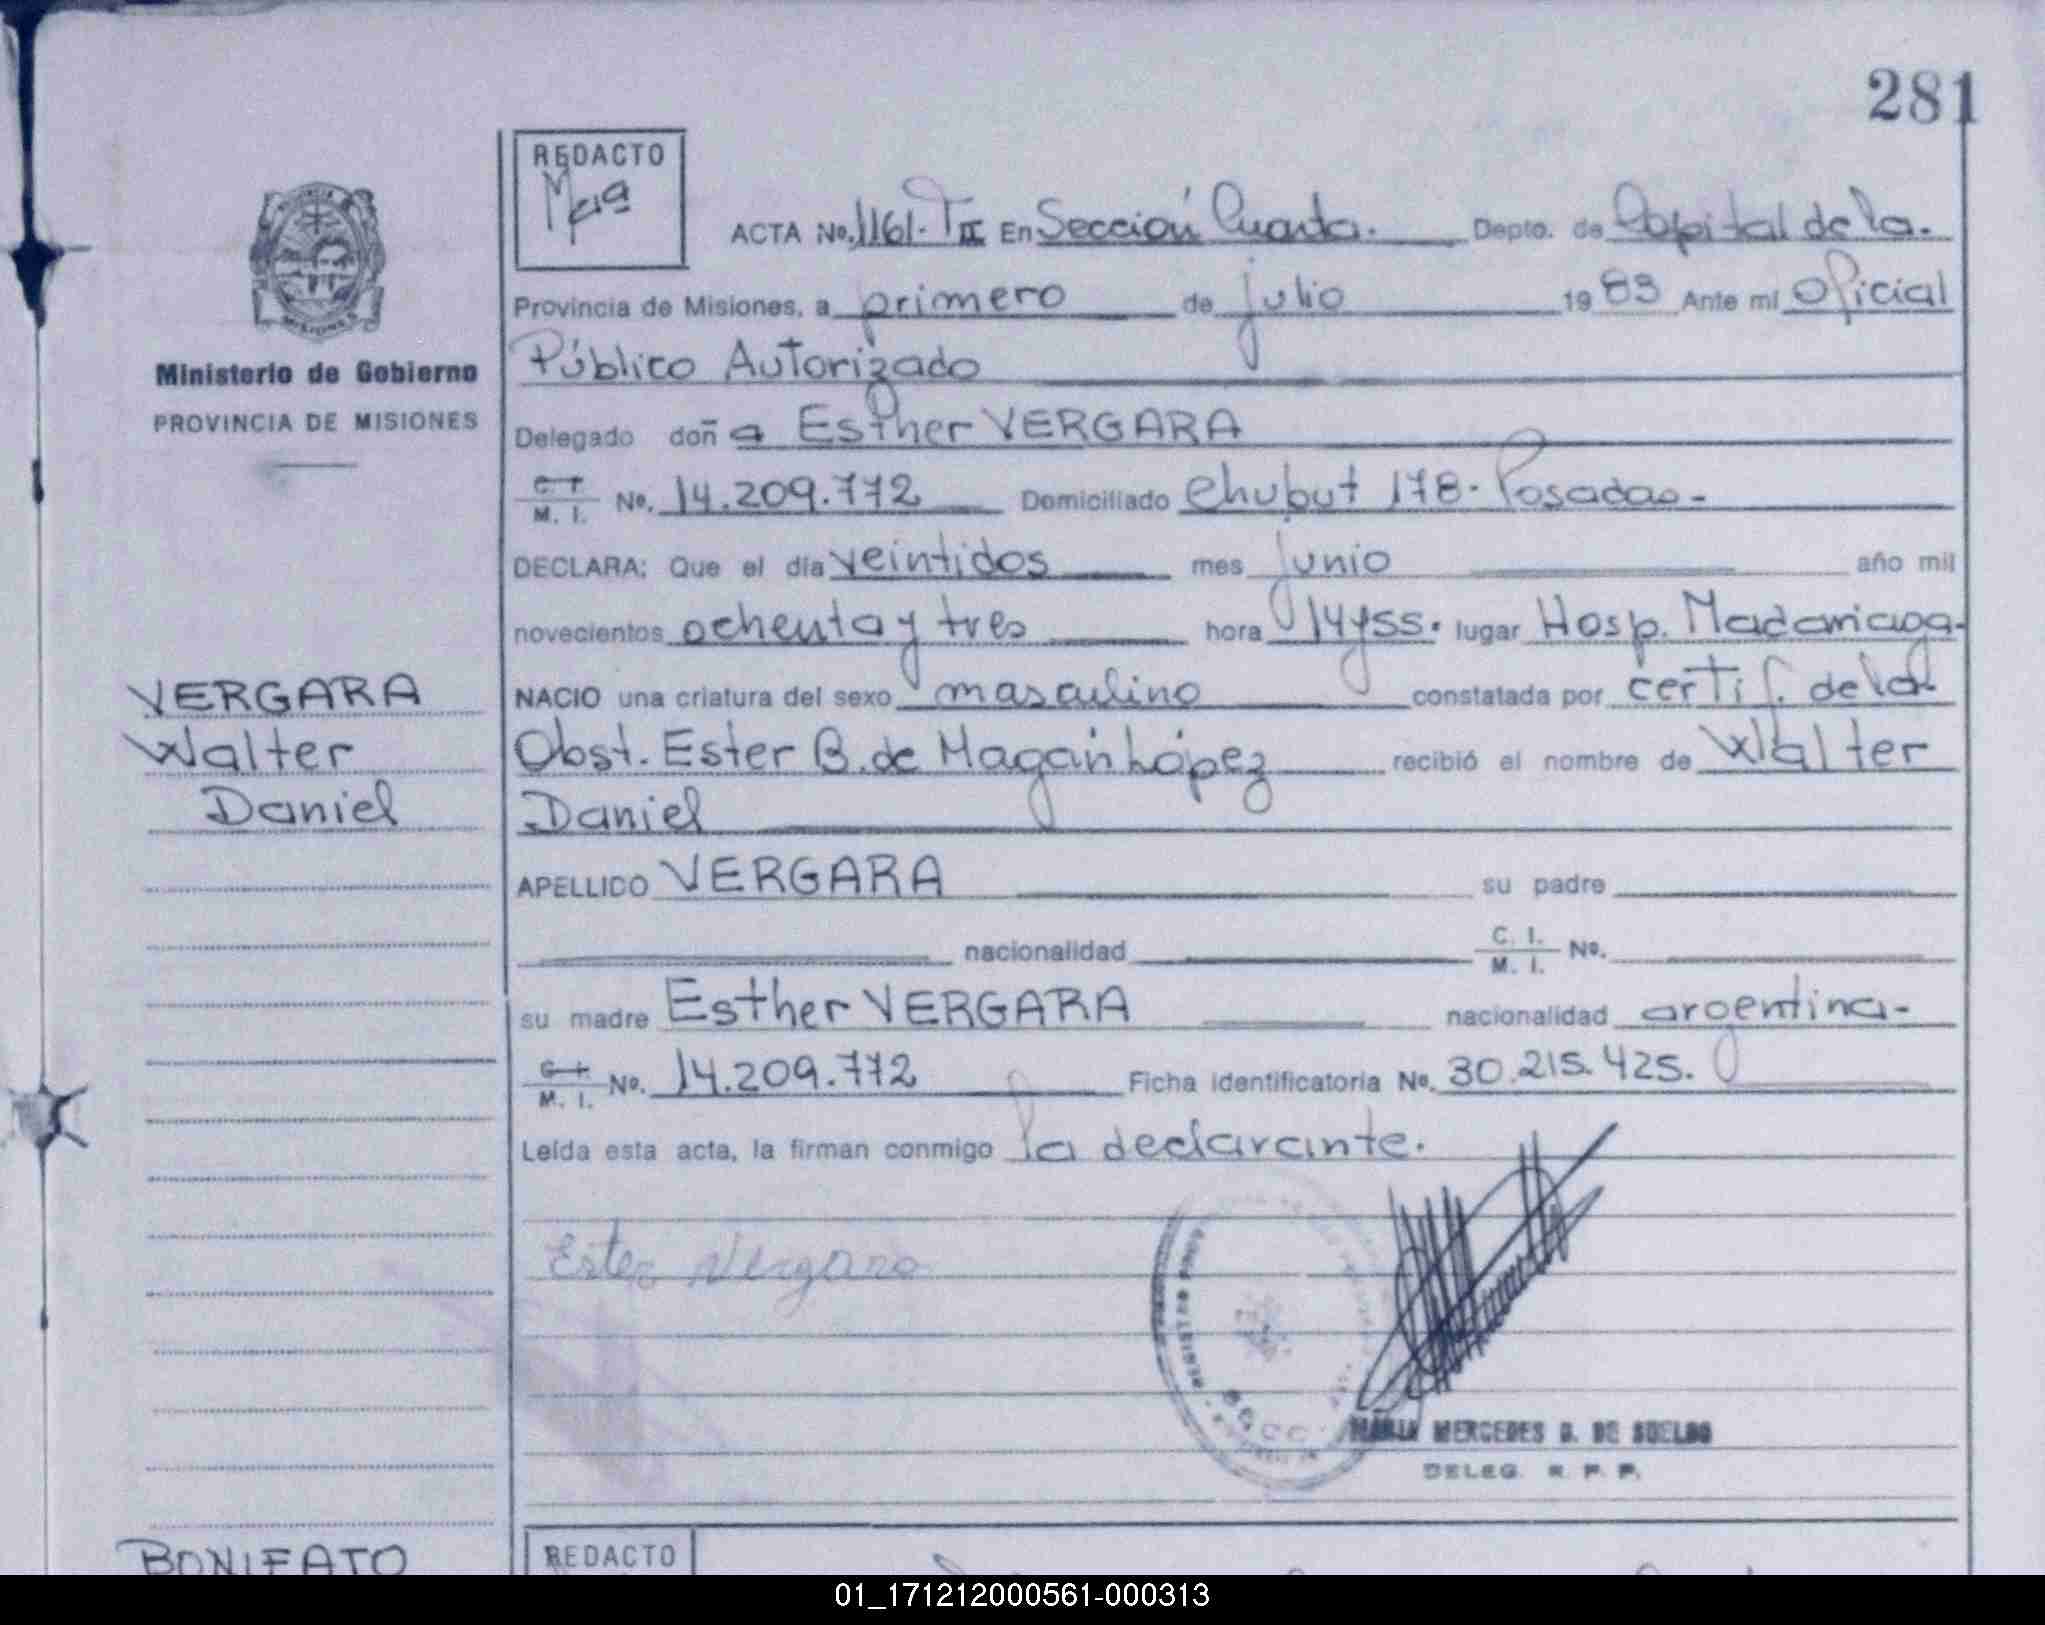 281
REDACTO
ACTA No. 1161-TII En Sección Cuarta. Depto. de Capital de la.
Provincia de Misiones, a primero de julio 1983 Ante mí Oficial
Público Autorizado
Ministerio de Gobierno
PROVINCIA DE MISIONES
Delegado doña Esther VERGARA
C. I. M. I. No. 14.209.772 Domiciliado Chubut 178-Posadas-
DECLARA: Que el día veintidos mes junio año mil
novecientos ochenta y tres hora 14y55. lugar Hosp. Madariaga-
VERGARA
Walter
Daniel
NACIO una criatura del sexo masculino constatada por certif. de la
Obst. Ester B. de Magán López recibió el nombre de Walter
Daniel
APELLIDO VERGARA su padre
nacionalidad C. I. M. I. No.
su madre Esther VERGARA nacionalidad argentina-
C. I. M. I. No. 14.209.772 Ficha identificatoria No. 30.215.425.
Leída esta acta, la firman conmigo la declarante.
Ester Vergara
MARIA MERCEDES G. DE SUELDO
DELEG. R. P. P.
BONIFATO
REDACTO
01_171212000561-000313